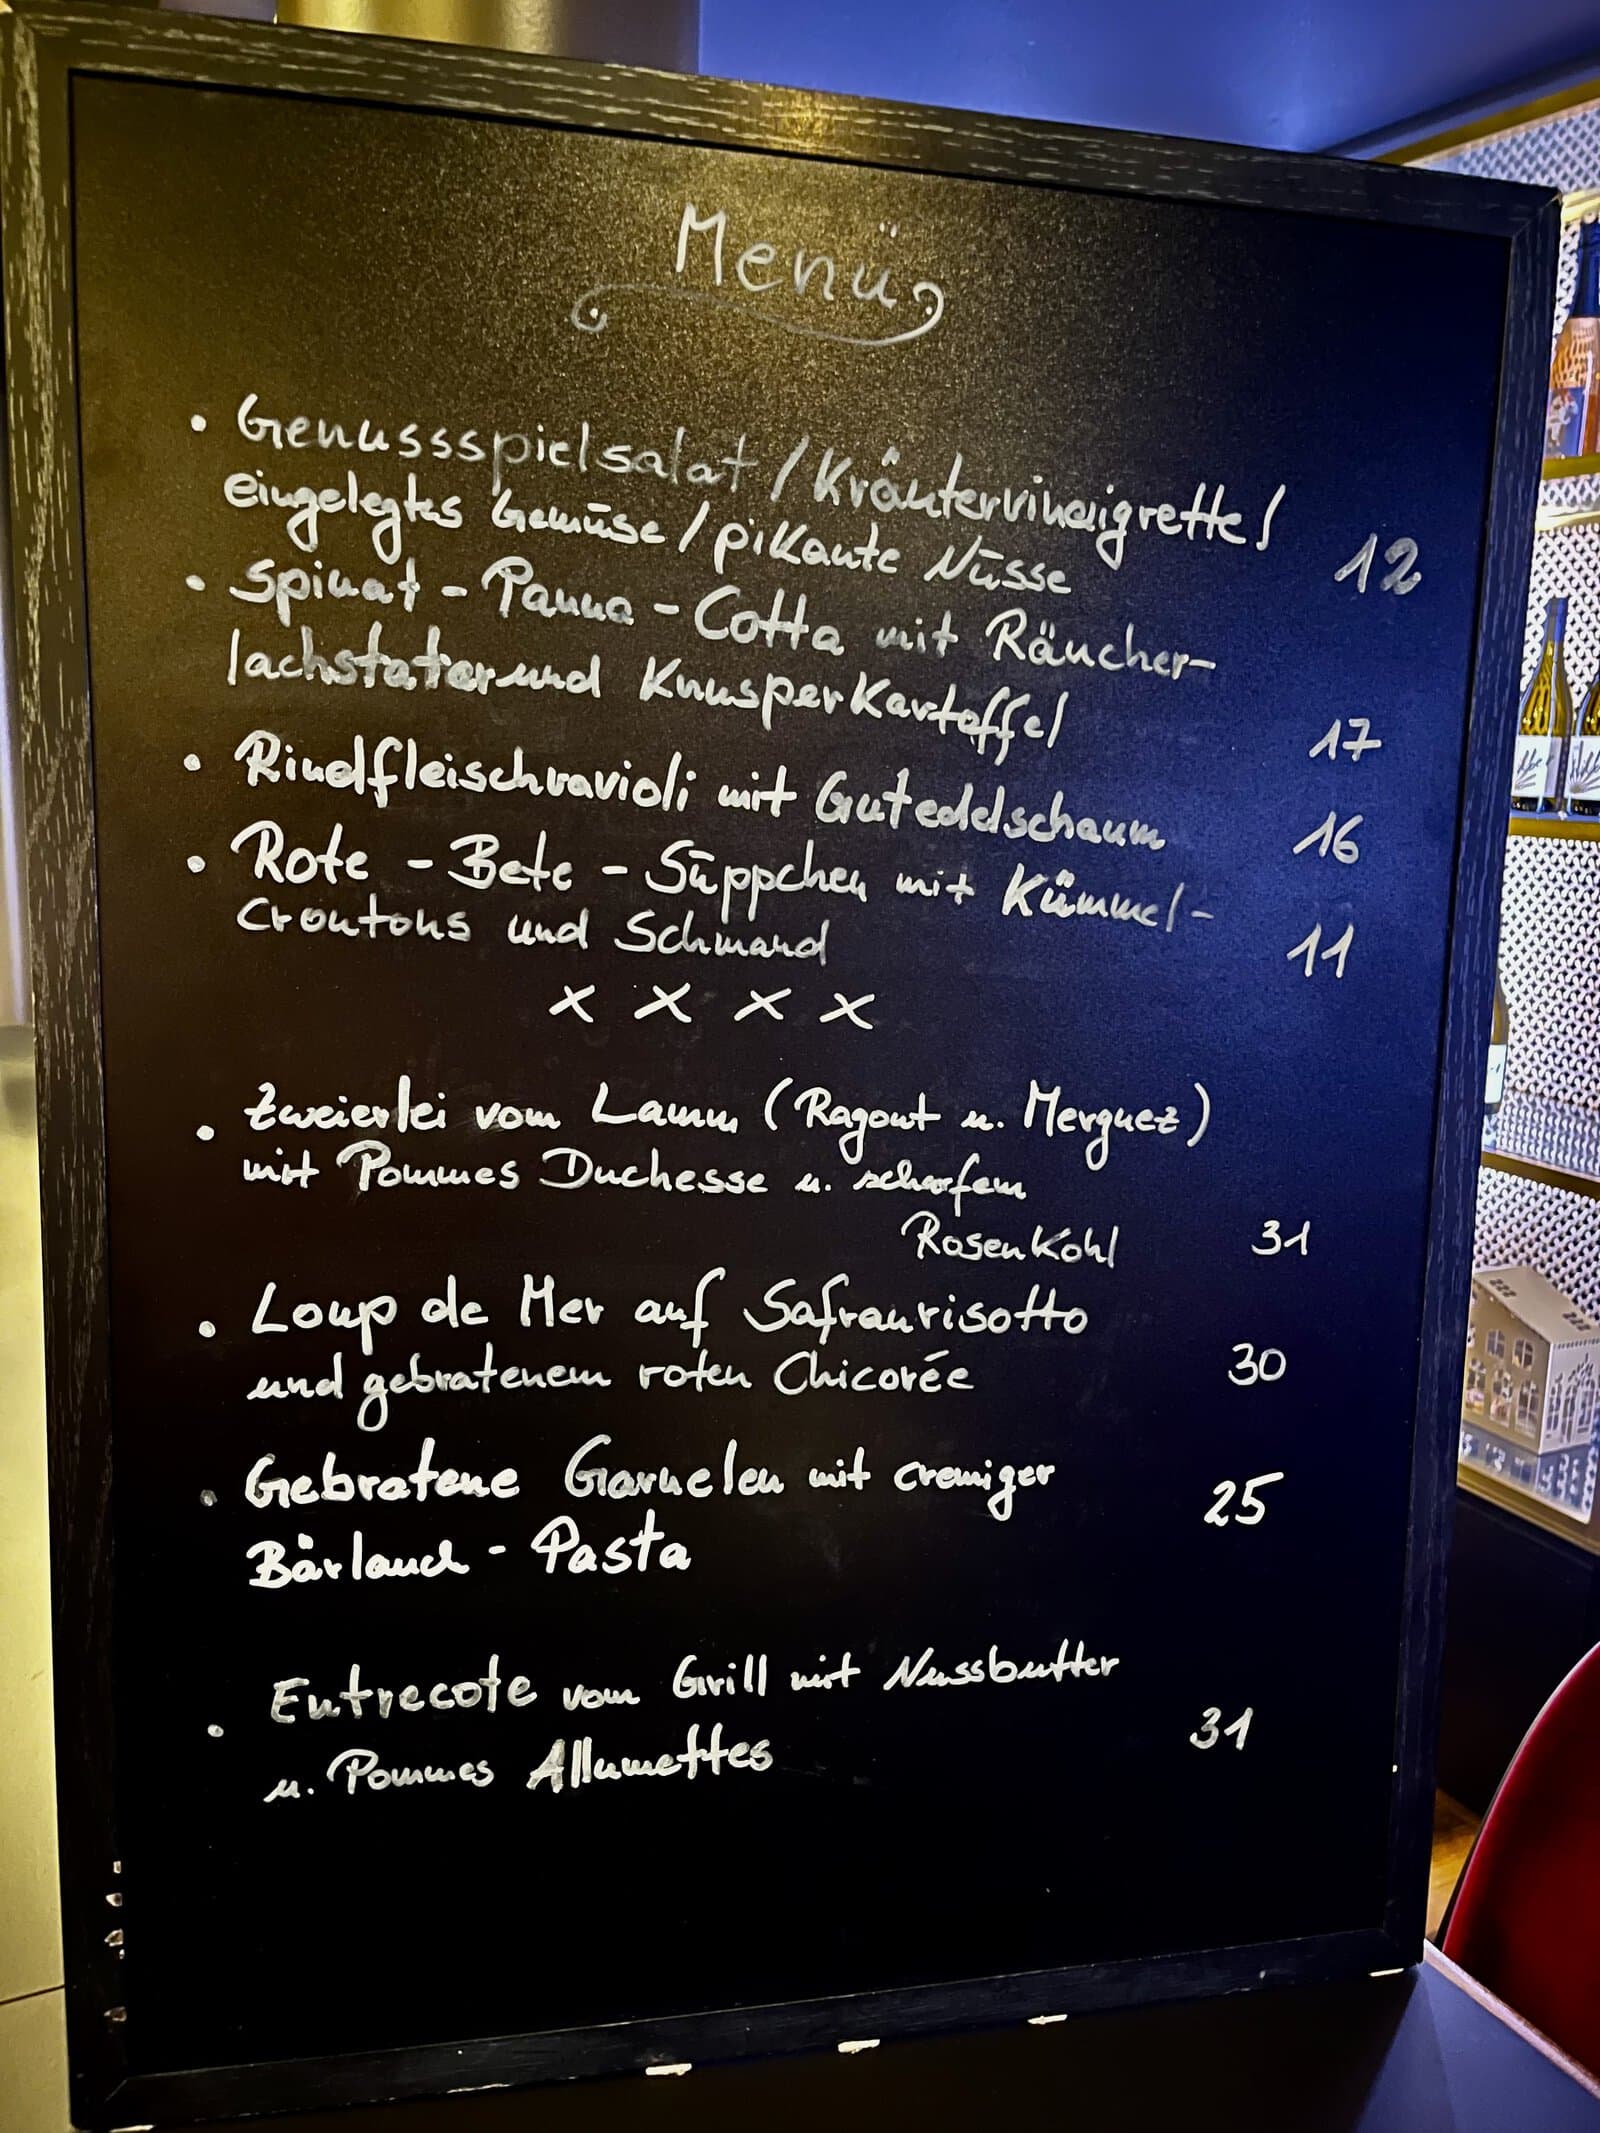 Menü
• Genussspielsalat / Kräutervinaigrette /
eingelegtes Gemüse / pikante Nüsse 12
• Spinat - Panna - Cotta mit Räucher-
lachstatar und Knusperkartoffel 17
• Rindfleischravioli mit Gutedelschaum 16
• Rote - Bete - Süppchen mit Kümmel-
Croutons und Schmand 11
x x x x
• Zweierlei vom Lamm (Ragout u. Merguez)
mit Pommes Duchesse u. scharfem
Rosenkohl 31
• Loup de Mer auf Safranrisotto
und gebratenem roten Chicorée 30
• Gebratene Garnelen mit cremiger
Bärlauch - Pasta 25
• Entrecote vom Grill mit Nussbutter
u. Pommes Allumettes 31